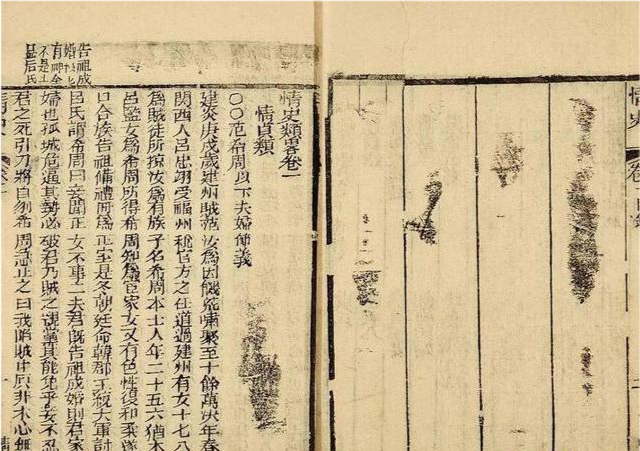 情史 卷一
情史類畧卷一
情貞類
○○范希周以下夫婦節義
建炎庚戌歲建州賊范汝為因饑荒嘯聚至十餘萬次年春
關西人呂忠翊受福州稅官方之任道過建州有女十七八
為賊徒所掠汝為有族子名希周本士人年二十五六猶未
呂監女為希周所得希周知為宦家女又有色性復和柔遂
日合族告祖備禮冊為正室是冬朝廷命韓郡王統大軍討
呂氏謂希周曰妾聞正女不事二夫君既告祖成婚則君家
婦也孤城危逼其勢必破君乃賊之親黨其能免乎妾不忍
君之死引刀將自刎希周急止之曰我陷賊中原非本心無
告祖成